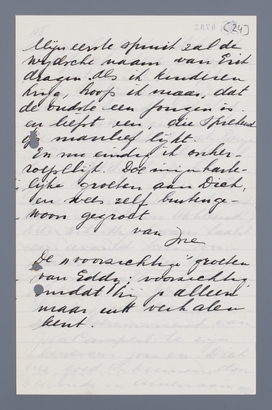 (24)
Mijn eerste spruit zal de
wijdsche naam van Erik
dragen. Als ik kinderen
krijg, hoop ik maar, dat
de oudste een jongen is
en liefst een, die sprekend
op manlief lijkt.
En nu eindig ik onher-
roepelijk. Doe mijn harte-
lijke groeten aan Dick,
en wees zelf buitenge-
woon gegroet
van Ine
De "voorzichtige" groeten
van Eddy; voorzichtig
omdat hij je alleen
maar uit verhalen
kent.